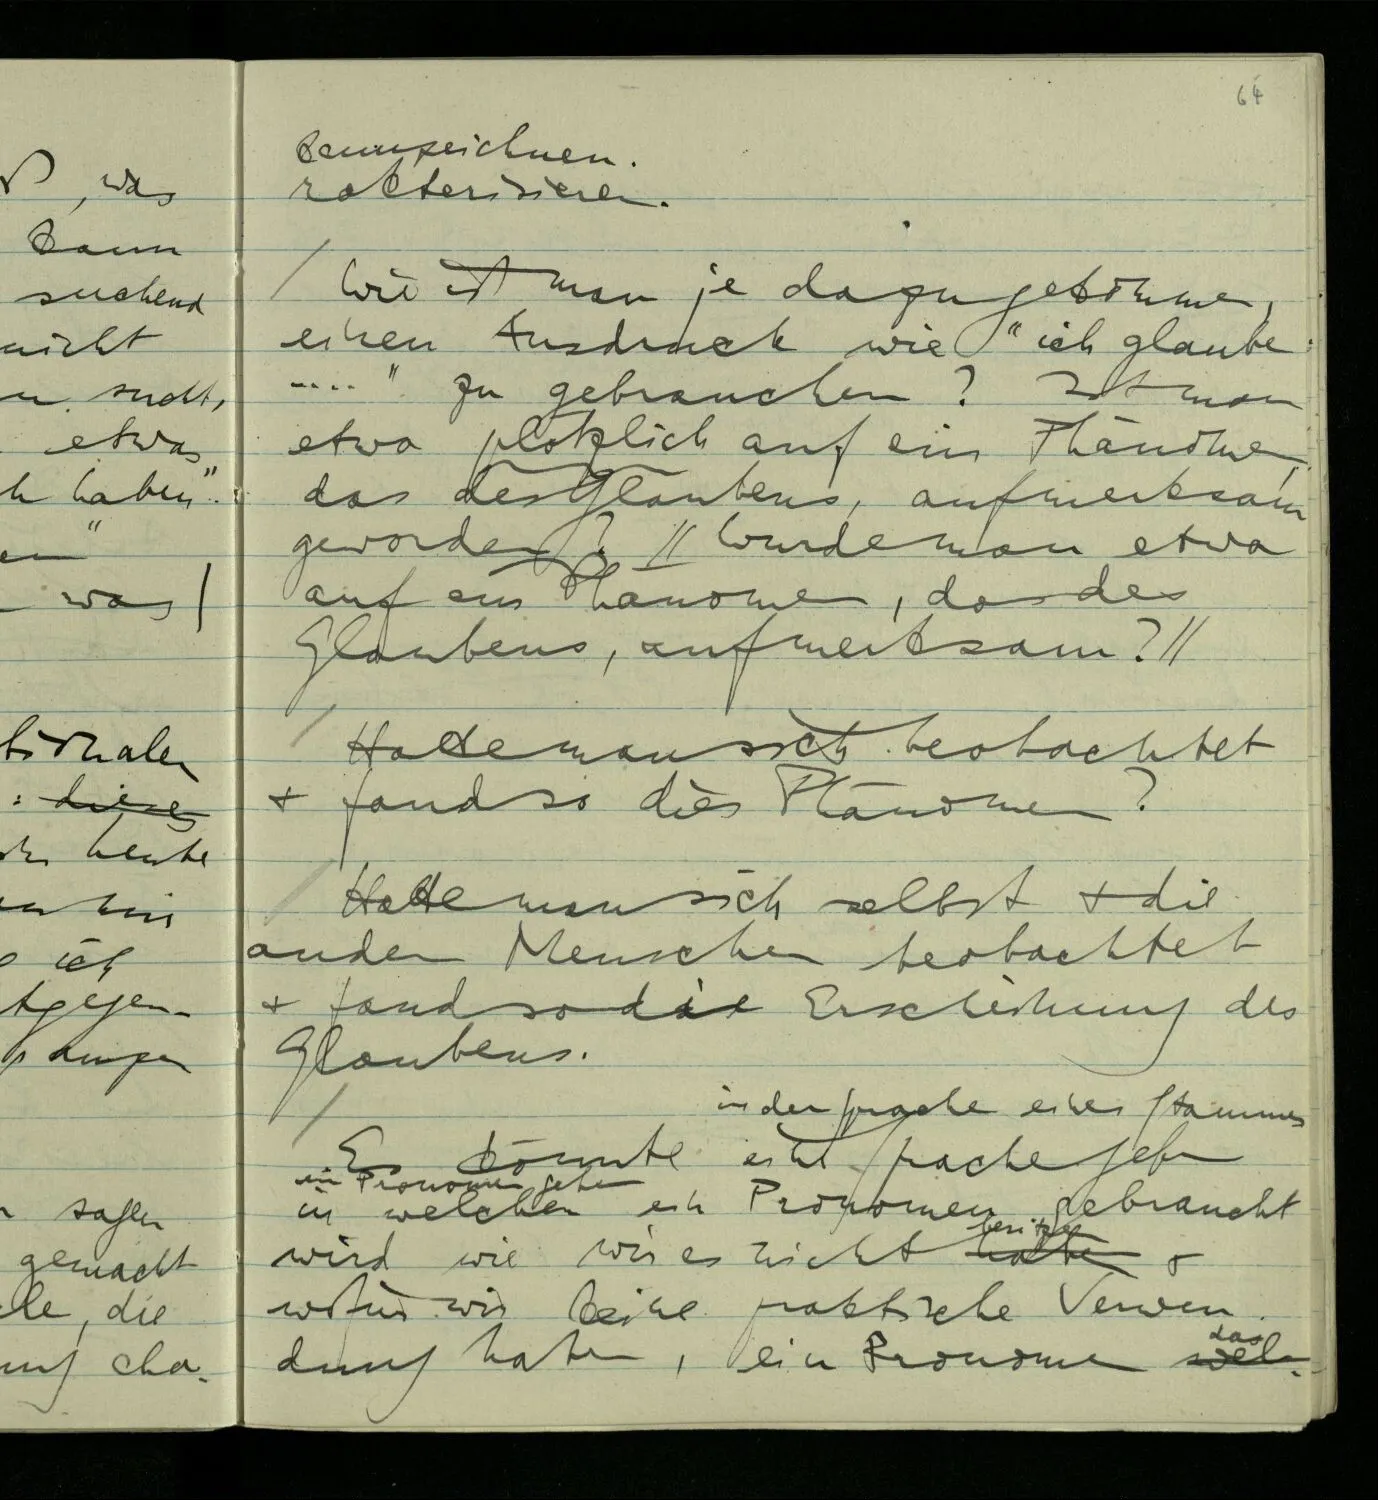 , was
kann
suchend
nicht
sucht,
etwas
haben".
was
: dieses
heute
ich
sagen
gemacht
, die
cha-
64
kennzeichnen.
rakterisieren.
/ Wie ist man je dazu gekommen,
einen Ausdruck wie "ich glaube
....." zu gebrauchen? Ist man
etwa plötzlich auf ein Phänomen,
das des Glaubens, aufmerksam
geworden? // Wurde man etwa
auf ein Phänomen, das des
Glaubens, aufmerksam? //
/ Hatte man sich beobachtet
+ fand so dies Phänomen?
/ Hatte man sich selbst + die
anden Menschen beobachtet
+ fand so die Erscheinung des
Glaubens.
in der Sprache eines Stammes
/ Es könnte eine Sprache geben
ein Pronomen geben
in welcher ein Pronomen gebraucht
besitzen
wird wie wir es nicht haben &
wofür wir keine praktische Verwen
das
dung haben, ein Pronomen wel-